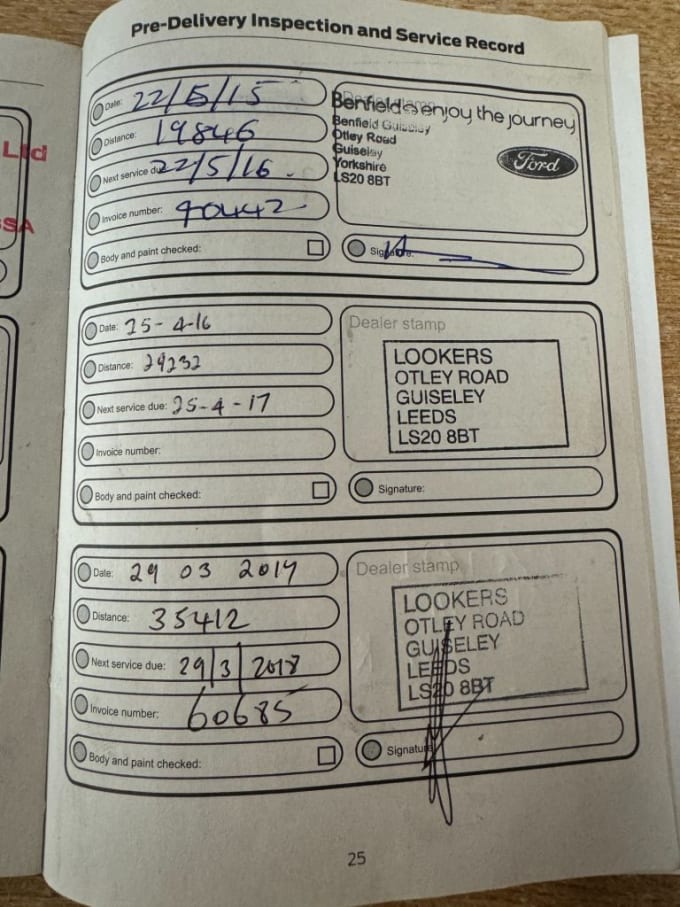 Pre-Delivery Inspection and Service Record
Ltd
SSA
Date: 22/5/15
Distance: 19846
Next service due 22/5/16.
Invoice number: 90442
Body and paint checked:
Benfields enjoy the journey
Benfield Guiseley
Otley Road
Guiseley
Yorkshire
LS20 8BT
Ford
Signature:
Date: 25-4-16
Distance: 29232
Next service due: 25-4-17
Invoice number:
Body and paint checked:
Dealer stamp
LOOKERS
OTLEY ROAD
GUISELEY
LEEDS
LS20 8BT
Signature:
Date: 29 03 2017
Distance: 35412
Next service due: 29/3/2018
Invoice number: 60685
Body and paint checked:
Dealer stamp
LOOKERS
OTLEY ROAD
GUISELEY
LEEDS
LS20 8BT
Signature
25